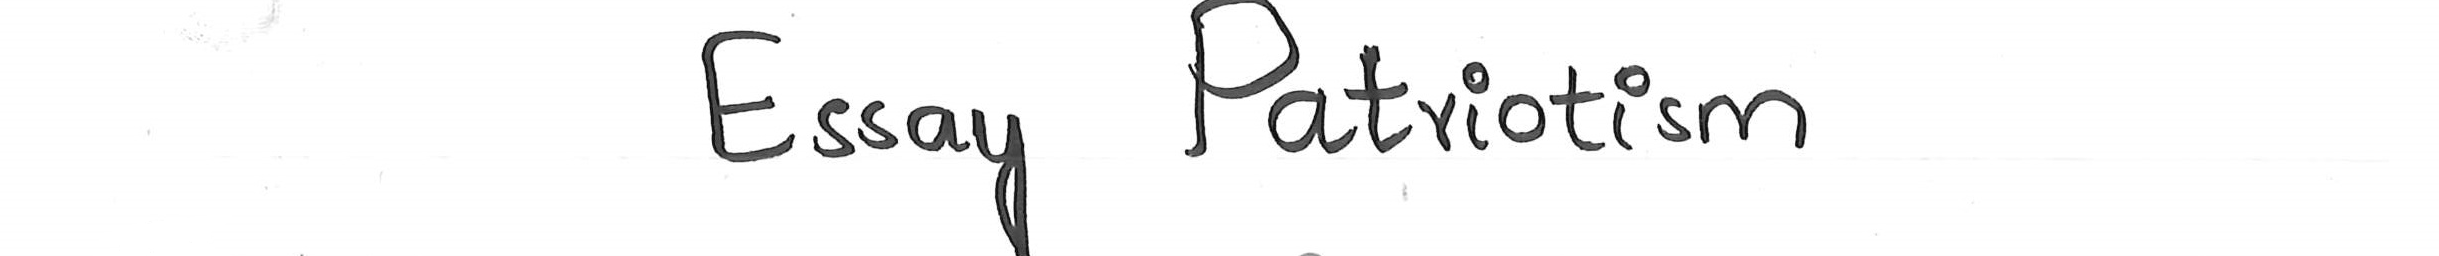 Essay Patriotism